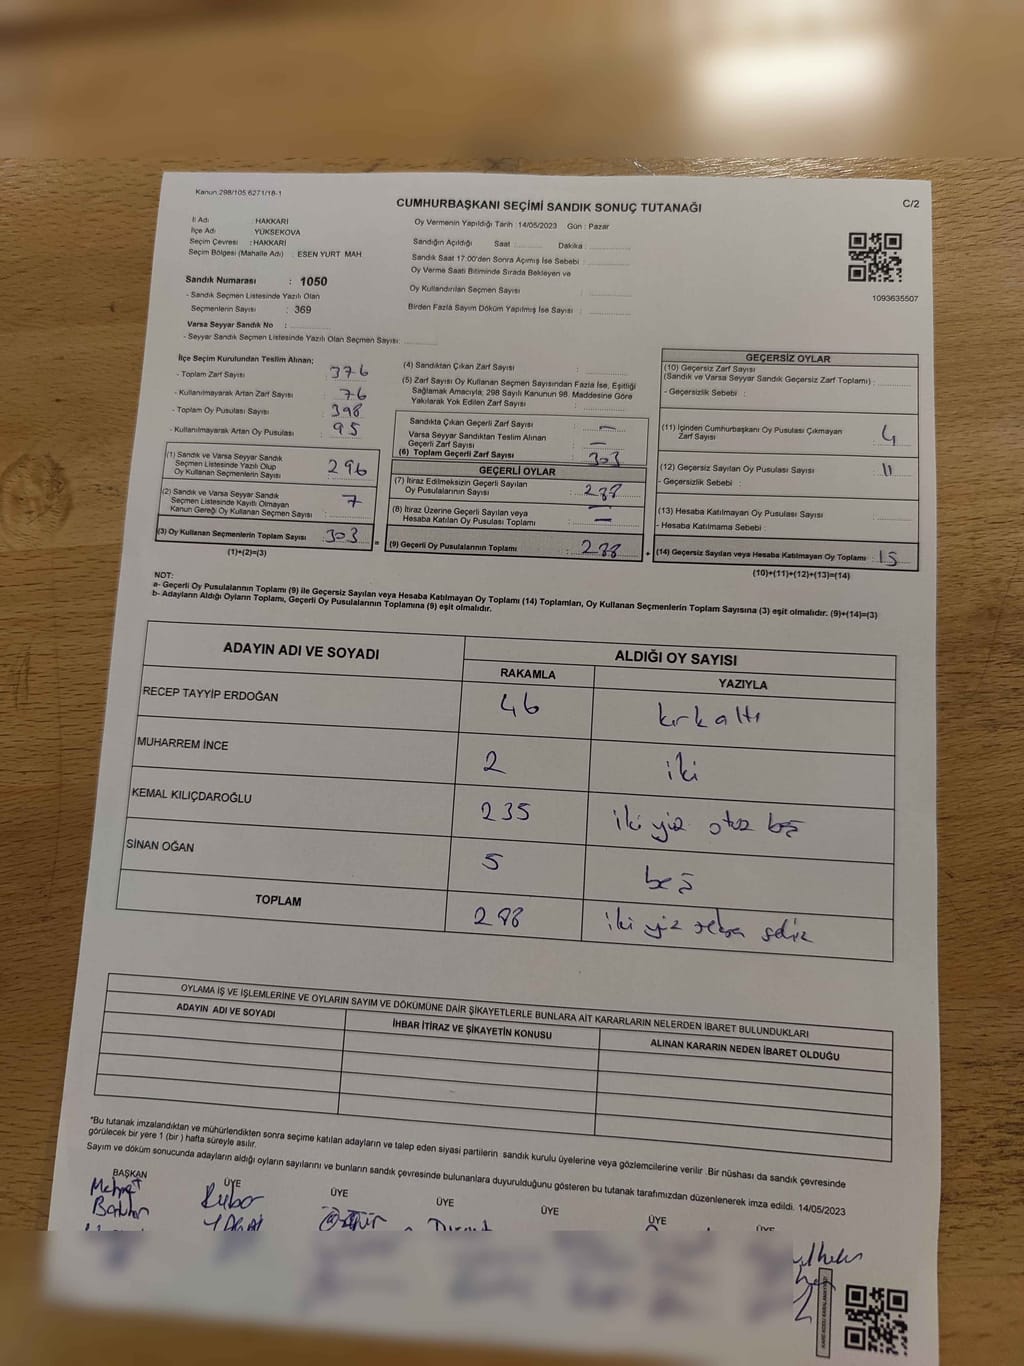 Kanun:298/105.6271/18-1
CUMHURBAŞKANI SEÇİMİ SANDIK SONUÇ TUTANAĞI
C/2
İl Adı : HAKKARİ
İlçe Adı : YÜKSEKOVA
Seçim Çevresi : HAKKARİ
Seçim Bölgesi (Mahalle Adı) : ESEN YURT MAH
Sandık Numarası : 1050
- Sandık Seçmen Listesinde Yazılı Olan
Seçmenlerin Sayısı : 369
Varsa Seyyar Sandık No :
- Seyyar Sandık Seçmen Listesinde Yazılı Olan Seçmen Sayısı:
Oy Vermenin Yapıldığı Tarih :14/05/2023 Gün : Pazar
Sandığın Açıldığı Saat Dakika :
Sandık Saat 17:00'den Sonra Açımış İse Sebebi :
Oy Verme Saati Bitiminde Sırada Bekleyen ve
Oy Kullandırılan Seçmen Sayısı :
Birden Fazla Sayım Döküm Yapılmış İse Sayısı :
1093635507
İlçe Seçim Kurulundan Teslim Alınan;
- Toplam Zarf Sayısı : 376
- Kullanılmayarak Artan Zarf Sayısı : 76
- Toplam Oy Pusulası Sayısı : 398
- Kullanılmayarak Artan Oy Pusulası : 95
(1) Sandık ve Varsa Seyyar Sandık
Seçmen Listesinde Yazılı Olup
Oy Kullanan Seçmenlerin Sayısı : 296
(2) Sandık ve Varsa Seyyar Sandık
Seçmen Listesinde Kayıtlı Olmayan
Kanun Gereği Oy Kullanan Seçmen Sayısı : 7
(3) Oy Kullanan Seçmenlerin Toplam Sayısı : 303
(1)+(2)=(3)
(4) Sandıktan Çıkan Zarf Sayısı :
(5) Zarf Sayısı Oy Kullanan Seçmen Sayısından Fazla İse, Eşitliği
Sağlamak Amacıyla; 298 Sayılı Kanunun 98. Maddesine Göre
Yakılarak Yok Edilen Zarf Sayısı :
Sandıkta Çıkan Geçerli Zarf Sayısı : -
Varsa Seyyar Sandıktan Teslim Alınan
Geçerli Zarf Sayısı : -
(6) Toplam Geçerli Zarf Sayısı : 303
GEÇERLİ OYLAR
(7) İtiraz Edilmeksizin Geçerli Sayılan
Oy Pusulalarının Sayısı : 288
(8) İtiraz Üzerine Geçerli Sayılan veya
Hesaba Katılan Oy Pusulası Toplamı : -
(9) Geçerli Oy Pusulalarının Toplamı : 288
GEÇERSİZ OYLAR
(10) Geçersiz Zarf Sayısı
(Sandık ve Varsa Seyyar Sandık Geçersiz Zarf Toplamı) :
- Geçersizlik Sebebi :
(11) İçinden Cumhurbaşkanı Oy Pusulası Çıkmayan
Zarf Sayısı : 4
(12) Geçersiz Sayılan Oy Pusulası Sayısı : 11
- Geçersizlik Sebebi :
(13) Hesaba Katılmayan Oy Pusulası Sayısı :
- Hesaba Katılmama Sebebi :
(14) Geçersiz Sayılan veya Hesaba Katılmayan Oy Toplamı : 15
(10)+(11)+(12)+(13)=(14)
NOT:
a- Geçerli Oy Pusulalarının Toplamı (9) ile Geçersiz Sayılan veya Hesaba Katılmayan Oy Toplamı (14) Toplamları, Oy Kullanan Seçmenlerin Toplam Sayısına (3) eşit olmalıdır. (9)+(14)=(3)
b- Adayların Aldığı Oyların Toplamı, Geçerli Oy Pusulalarının Toplamına (9) eşit olmalıdır.
ADAYIN ADI VE SOYADI
ALDIĞI OY SAYISI
RAKAMLA YAZIYLA
RECEP TAYYİP ERDOĞAN 46 kırkaltı
MUHARREM İNCE 2 iki
KEMAL KILIÇDAROĞLU 235 iki yüz otuz beş
SİNAN OĞAN 5 beş
TOPLAM 288 iki yüz seksen sekiz
OYLAMA İŞ VE İŞLEMLERİNE VE OYLARIN SAYIM VE DÖKÜMÜNE DAİR ŞİKAYETLERLE BUNLARA AİT KARARLARIN NELERDEN İBARET BULUNDUKLARI
ADAYIN ADI VE SOYADI İHBAR İTİRAZ VE ŞİKAYETİN KONUSU ALINAN KARARIN NEDEN İBARET OLDUĞU
*Bu tutanak imzalandıktan ve mühürlendikten sonra seçime katılan adayların ve talep eden siyasi partilerin sandık kurulu üyelerine veya gözlemcilerine verilir .Bir nüshası da sandık çevresinde
görülecek bir yere 1 (bir ) hafta süreyle asılır.
Sayım ve döküm sonucunda adayların aldığı oyların sayılarını ve bunların sandık çevresinde bulunanlara duyurulduğunu gösteren bu tutanak tarafımızdan düzenlenerek imza edildi. 14/05/2023
BAŞKAN ÜYE ÜYE ÜYE ÜYE ÜYE ÜYE
Mehmet